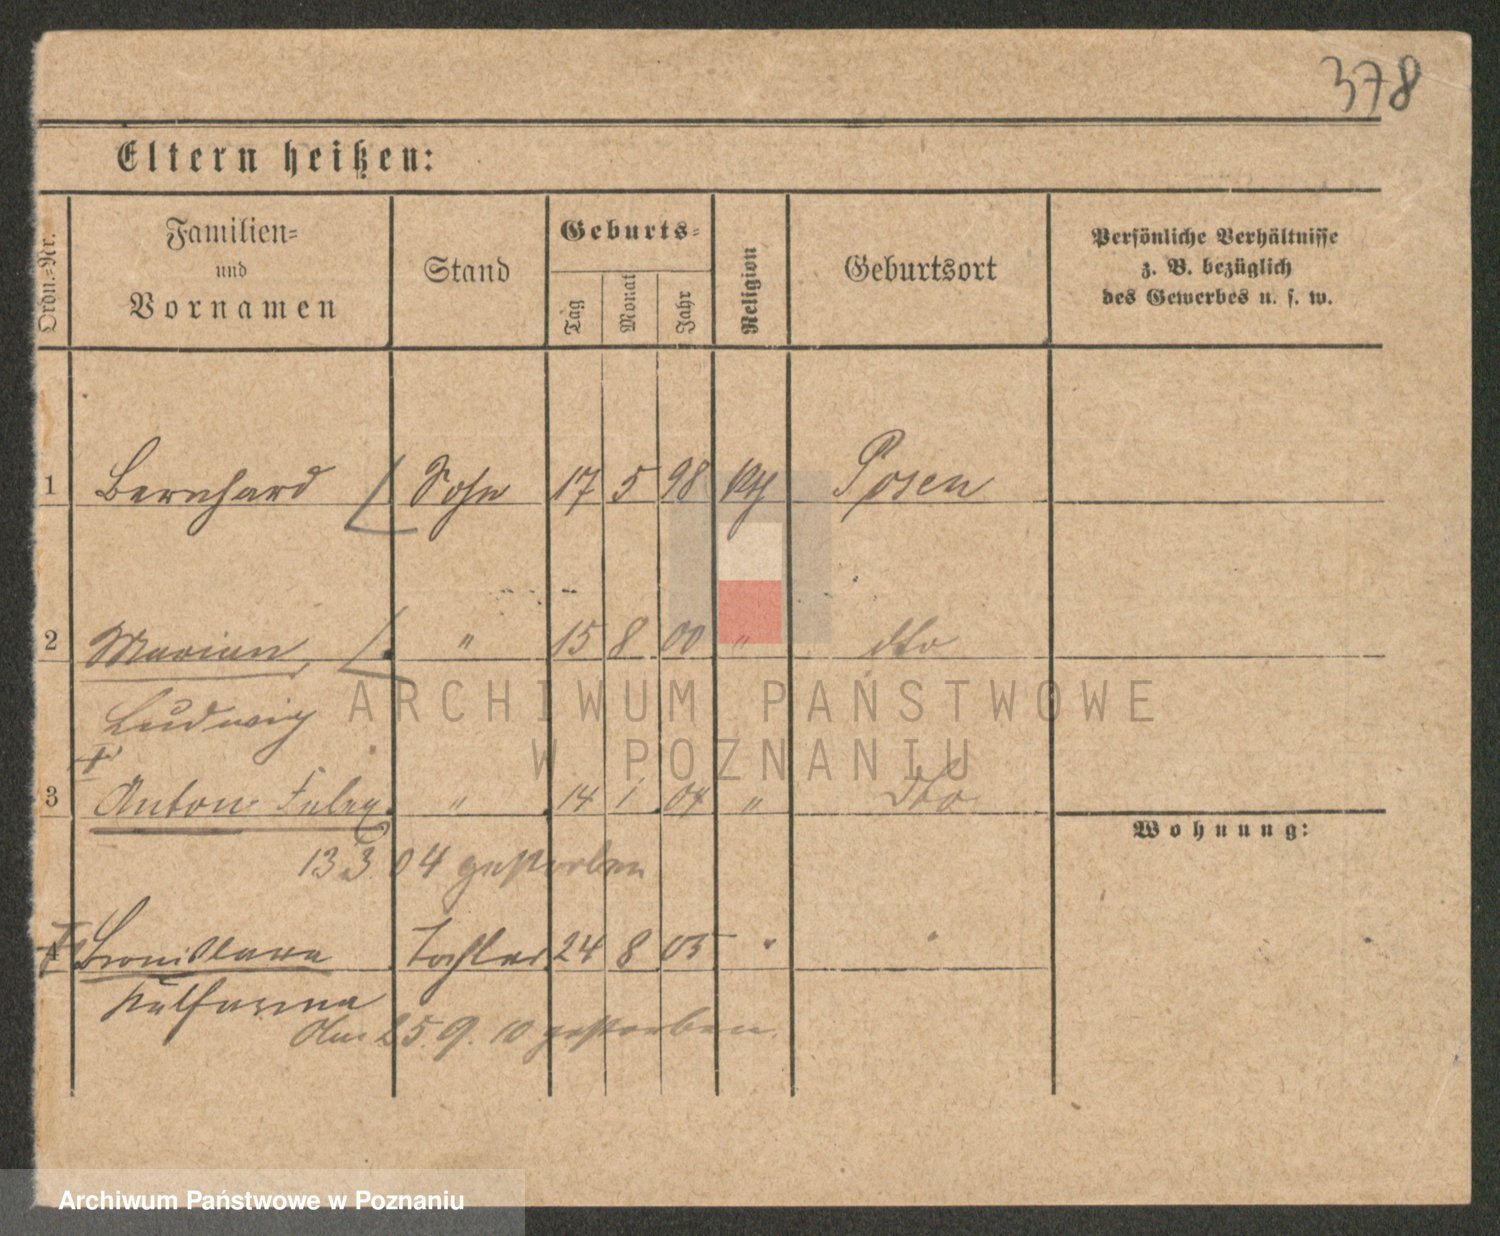 378
Eltern heißen:
Ordn.-Nr.
Familien-
und
Vornamen
Stand
Geburts-
Tag
Monat
Jahr
Religion
Geburtsort
Persönliche Verhältnisse
z. B. bezüglich
des Gewerbes u. s. w.
1 Bernhard Sohn 17 5 98 kth Posen
2 Marian, " 15 8 00 " dto
Ludwig
3 Anton Felex " 14 1 04 " dto
Wohnung:
13 3. 04 gestorben
4 Bronislawa Tochter 24 8 05 "
25. 9. 10 gestorben.
ARCHIWUM PAŃSTWOWE
W POZNANIU
Archiwum Państwowe w Poznaniu